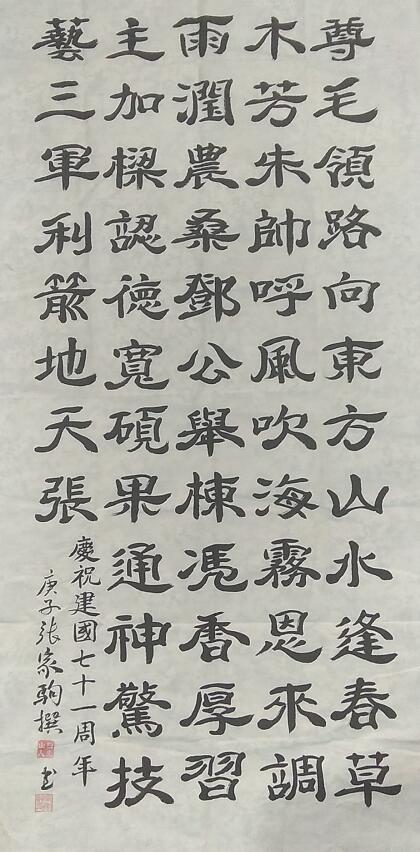 尊毛領路向東方山水逢春草
木芳朱帥呼風吹海霧恩來調
雨潤農桑鄧公舉棟馮香厚習
主加樑認德寬碩果通神驚技
藝三軍利箭地天張
慶祝建國七十一周年
庚子張家駒撰書